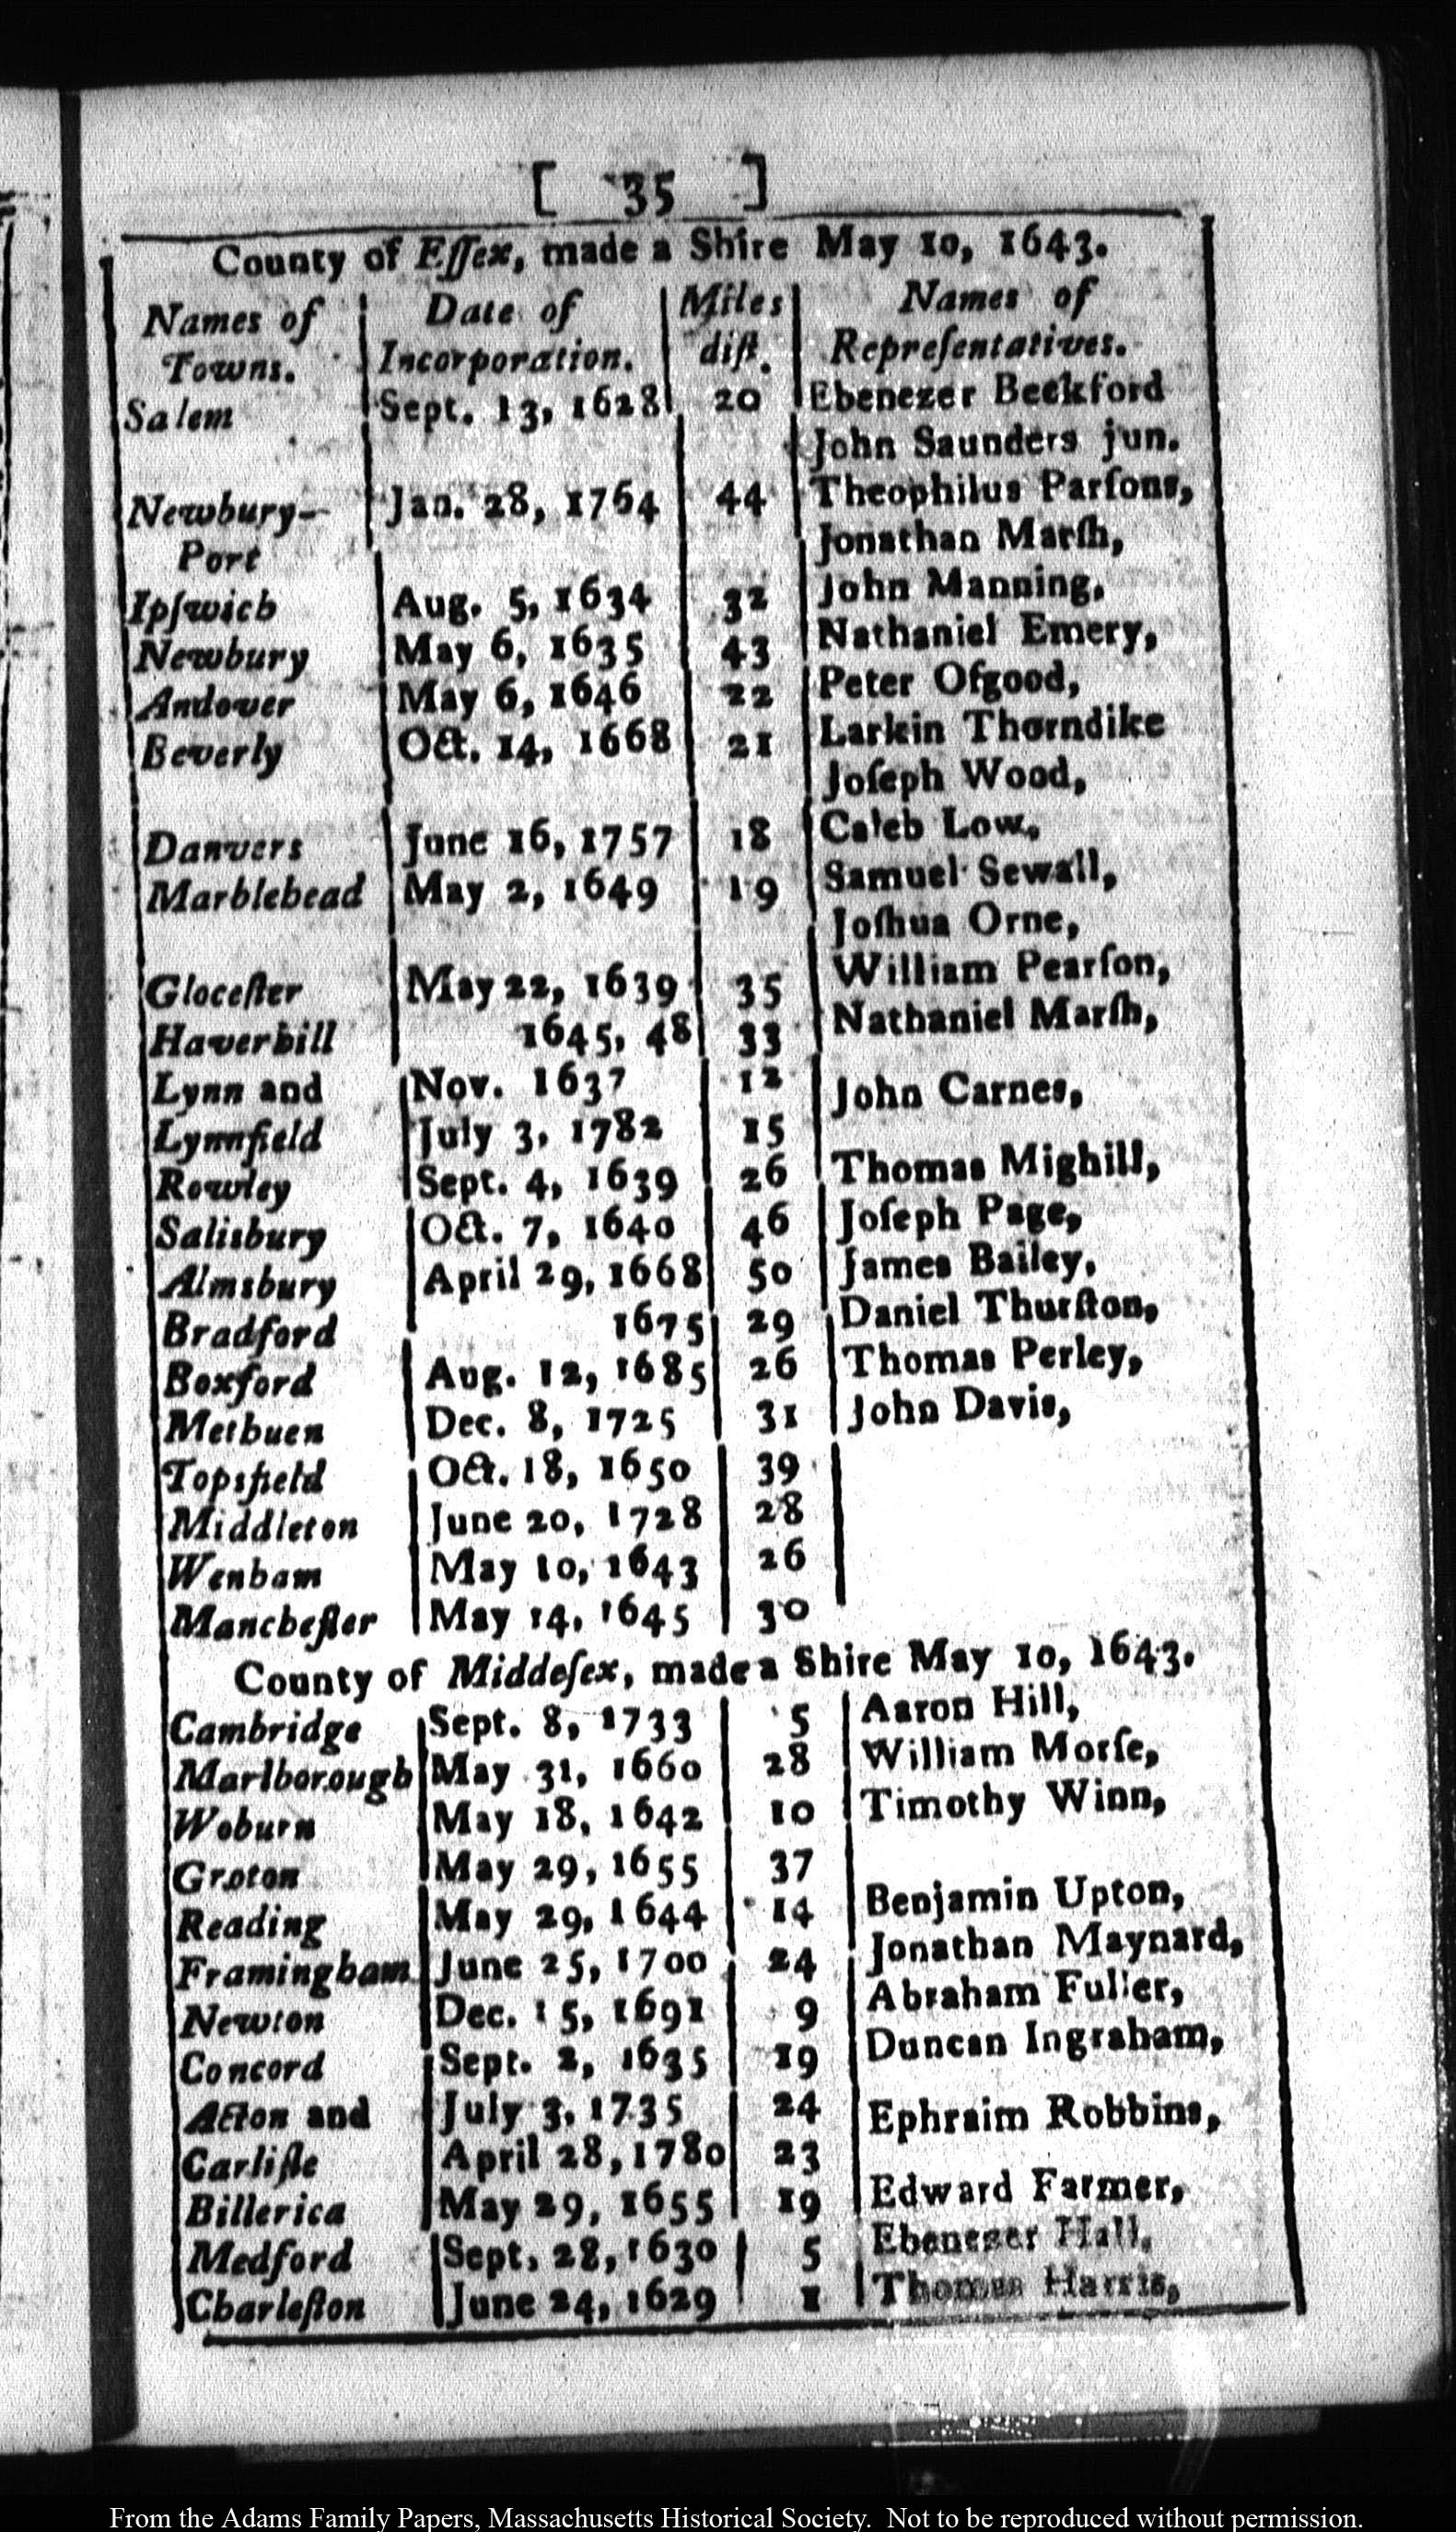 [ 35 ]
County of Eſſex, made a Shire May 10, 1643.
Names of | Date of | Miles | Names of
Towns. | Incorporation. | diſt. | Repreſentatives.
Salem | Sept. 13, 1628 | 20 | Ebenezer Beckford
John Saunders jun.
Newbury- | Jan. 28, 1764 | 44 | Theophilus Parſons,
Port | Jonathan Marſh,
Ipſwich | Aug. 5, 1634 | 32 | John Manning,
Newbury | May 6, 1635 | 43 | Nathaniel Emery,
Andover | May 6, 1646 | 22 | Peter Oſgood,
Beverly | Oct. 14, 1668 | 21 | Larkin Thorndike
Joſeph Wood,
Danvers | June 16, 1757 | 18 | Caleb Low,
Marblehead | May 2, 1649 | 19 | Samuel Sewall,
Joſhua Orne,
Gloceſter | May 22, 1639 | 35 | William Pearſon,
Haverhill | 1645, 48 | 33 | Nathaniel Marſh,
Lynn and | Nov. 1637 | 12 | John Carnes,
Lynnfield | July 3, 1782 | 15
Rowley | Sept. 4, 1639 | 26 | Thomas Mighill,
Salisbury | Oct. 7, 1640 | 46 | Joſeph Page,
Almsbury | April 29, 1668 | 50 | James Bailey,
Bradford | 1675 | 29 | Daniel Thurſton,
Boxford | Aug. 12, 1685 | 26 | Thomas Perley,
Methuen | Dec. 8, 1725 | 31 | John Davis,
Topsfield | Oct. 18, 1650 | 39
Middleton | June 20, 1728 | 28
Wenham | May 10, 1643 | 26
Mancheſter | May 14, 1645 | 30
County of Middeſex, made a Shire May 10, 1643.
Cambridge | Sept. 8, 1733 | 5 | Aaron Hill,
Marlborough | May 31, 1660 | 28 | William Morſe,
Woburn | May 18, 1642 | 10 | Timothy Winn,
Groton | May 29, 1655 | 37
Reading | May 29, 1644 | 14 | Benjamin Upton,
Framingham | June 25, 1700 | 24 | Jonathan Maynard,
Newton | Dec. 15, 1691 | 9 | Abraham Fuller,
Concord | Sept. 2, 1635 | 19 | Duncan Ingraham,
Acton and | July 3, 1735 | 24 | Ephraim Robbins,
Carliſle | April 28, 1780 | 23
Billerica | May 29, 1655 | 19 | Edward Farmer,
Medford | Sept. 28, 1630 | 5 | Ebenezer Hall,
Charleſton | June 24, 1629 | 1 | Thomas Harris,
From the Adams Family Papers, Massachusetts Historical Society. Not to be reproduced without permission.